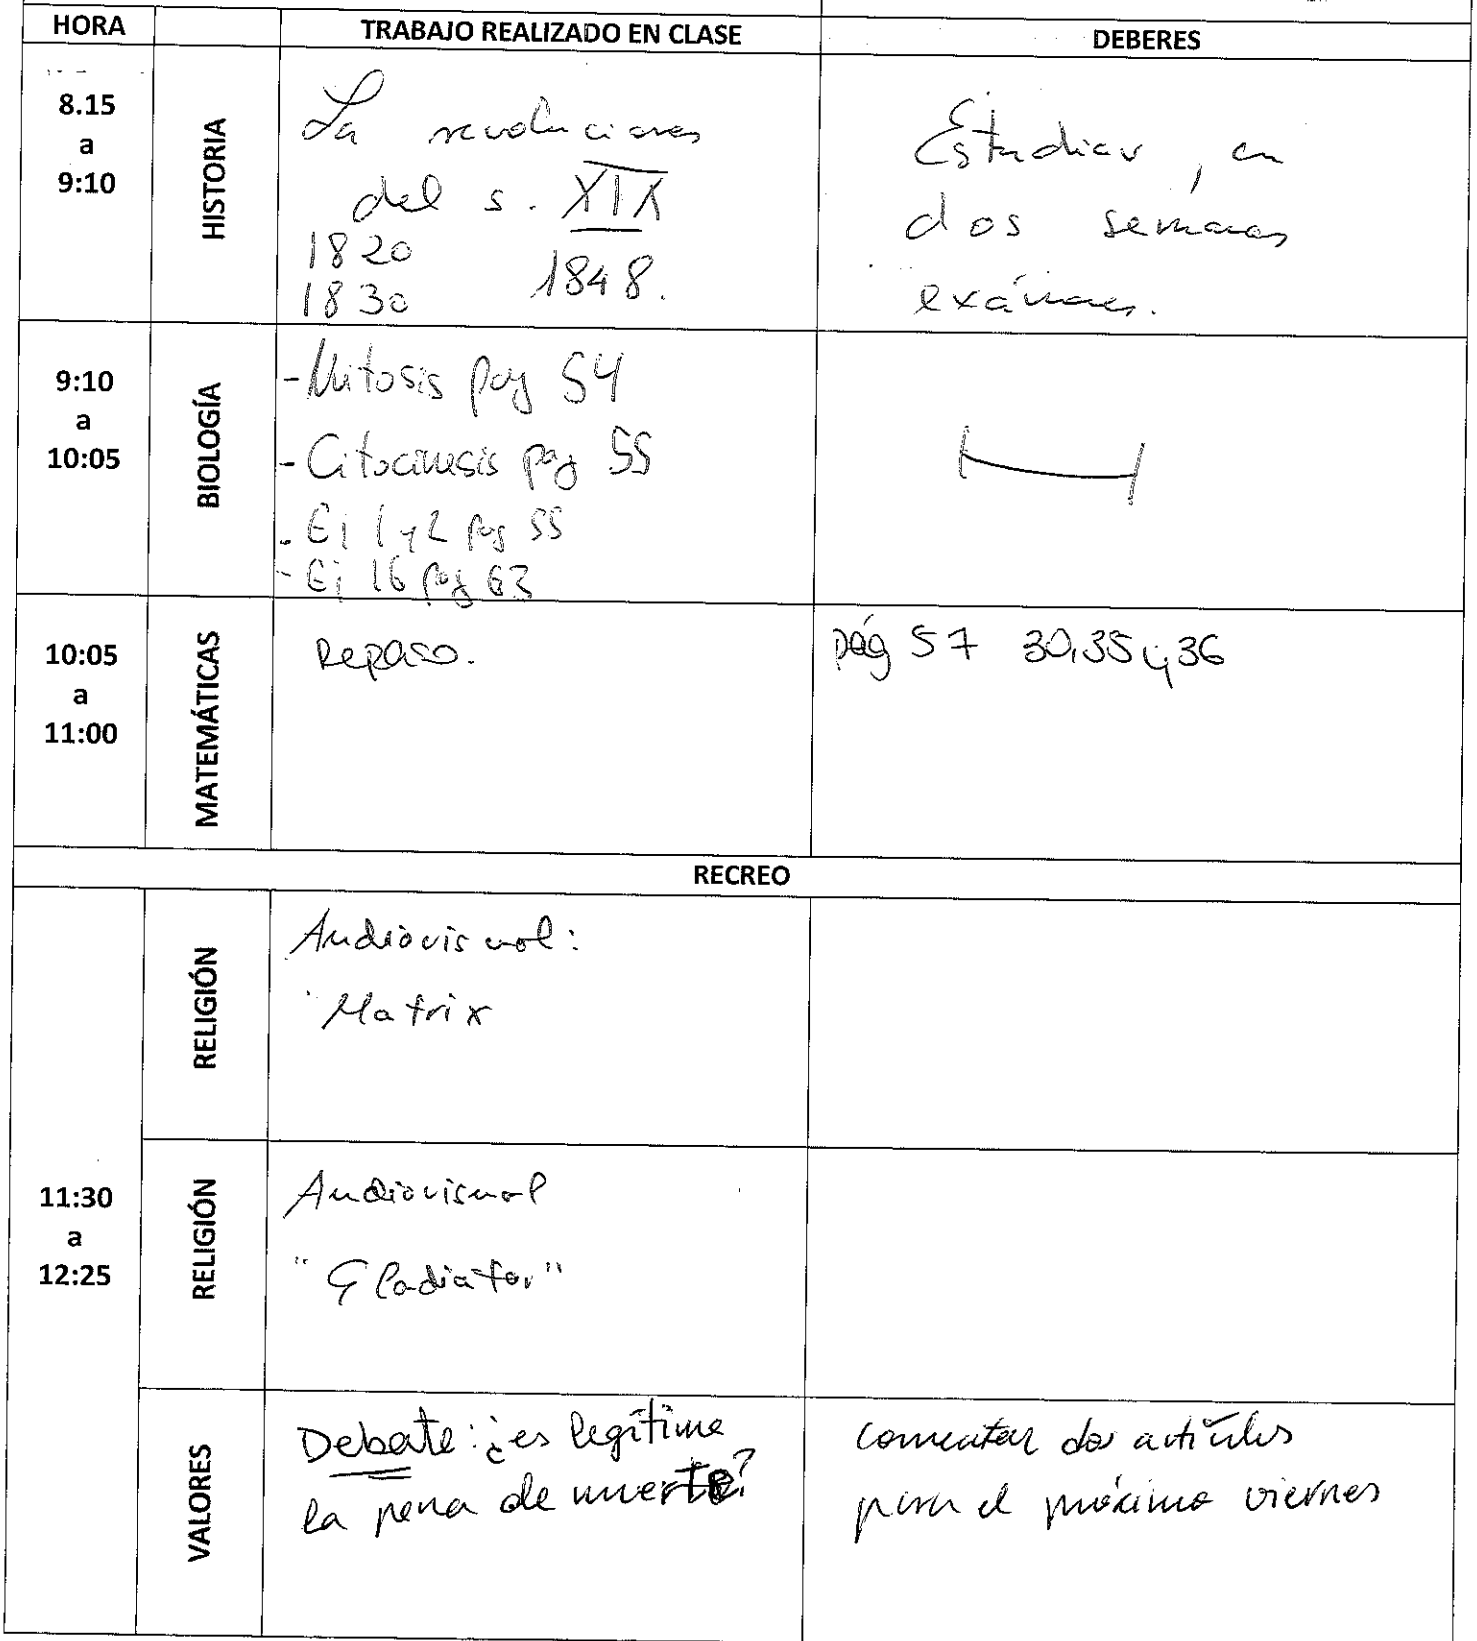 HORA TRABAJO REALIZADO EN CLASE DEBERES
8.15
a
9:10
HISTORIA
La revoluciones
del s. XIX
1820
1830 1848.
Estudiar, en
dos semanas
exámenes.
9:10
a
10:05
BIOLOGÍA
- Mitosis pag 54
- Citocinesis pag 55
- Ej 1 y 2 pag 55
- Ej 16 pag 63
10:05
a
11:00
MATEMÁTICAS
Repaso.
pág 57 30,35 y 36
RECREO
11:30
a
12:25
RELIGIÓN
Audiovisual:
"Matrix
RELIGIÓN
Audiovisual
"Gladiator"
VALORES
Debate: ¿es legítima
la pena de muerte?
comentar dos artículos
para el próximo viernes